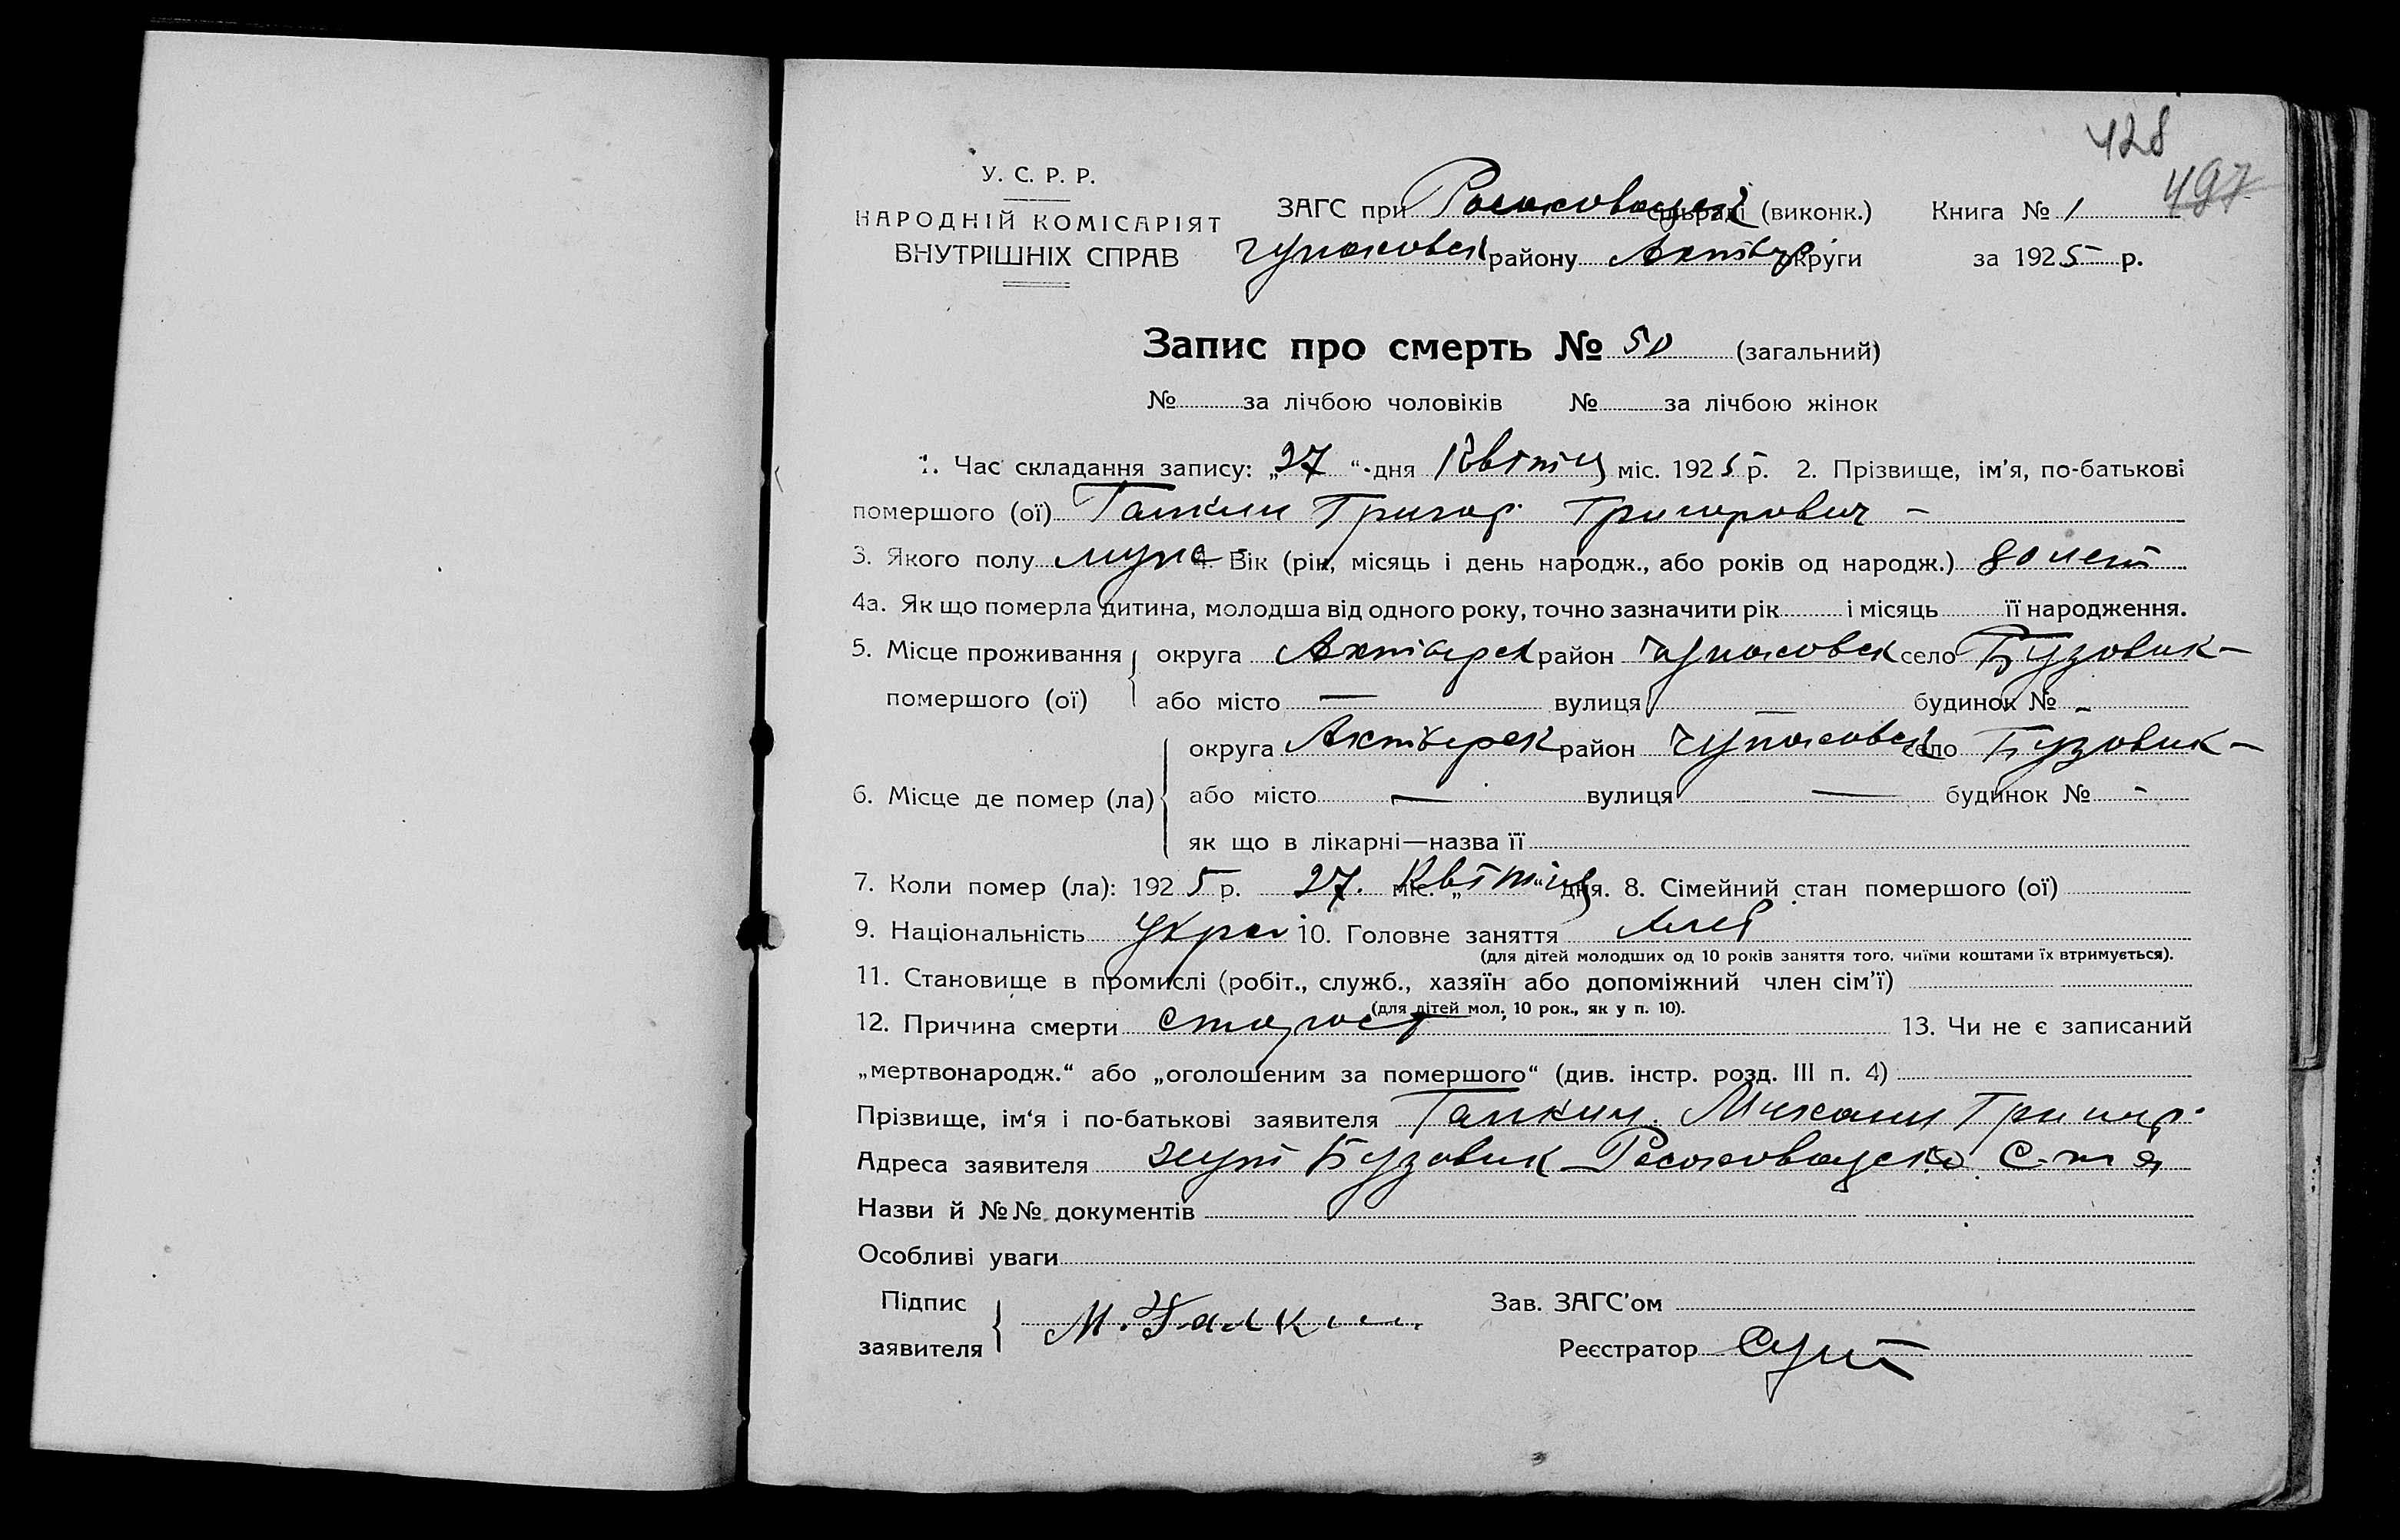 428
497
У. С. Р. Р.
НАРОДНІЙ КОМІСАРІЯТ
ВНУТРІШНІХ СПРАВ
ЗАГС при сільраді (виконк.) Книга № 1
району округи за 1925 р.
Запис про смерть № 50 (загальний)
№ за лічбою чоловіків № за лічбою жінок
1. Час складання запису: „27“ дня Квітня міс. 1925 р. 2. Прізвище, ім'я, по-батькові
помершого (ої) Галкин Григор. Григорович –
3. Якого полу муж 4. Вік (рік, місяць і день народж., або років од народж.) 80 лет
4а. Як що померла дитина, молодша від одного року, точно зазначити рік і місяць її народження.
5. Місце проживання округа район село Бузовик –
помершого (ої) або місто — вулиця — будинок № –
округа район село Бузовик –
6. Місце де помер (ла) або місто — вулиця — будинок № –
як що в лікарні—назва її
7. Коли помер (ла): 1925 р. 27. міс. „ Квітня “ дня. 8. Сімейний стан помершого (ої)
9. Національність Укра 10. Головне заняття
(для дітей молодших од 10 років заняття того, чиїми коштами їх втримується).
11. Становище в промислі (робіт., служб., хазяїн або допоміжний член сім'ї)
(для дітей мол. 10 рок., як у п. 10).
12. Причина смерти старост 13. Чи не є записаний
„мертвонародж.“ або „оголошеним за помершого“ (див. інстр. розд. III п. 4)
Прізвище, ім'я і по-батькові заявителя Галкин. Михаил Григор.
Адреса заявителя хут Бузовик
Назви й №№ документів
Особливі уваги
Підпис
заявителя М. Галкин.
Зав. ЗАГС'ом
Реєстратор